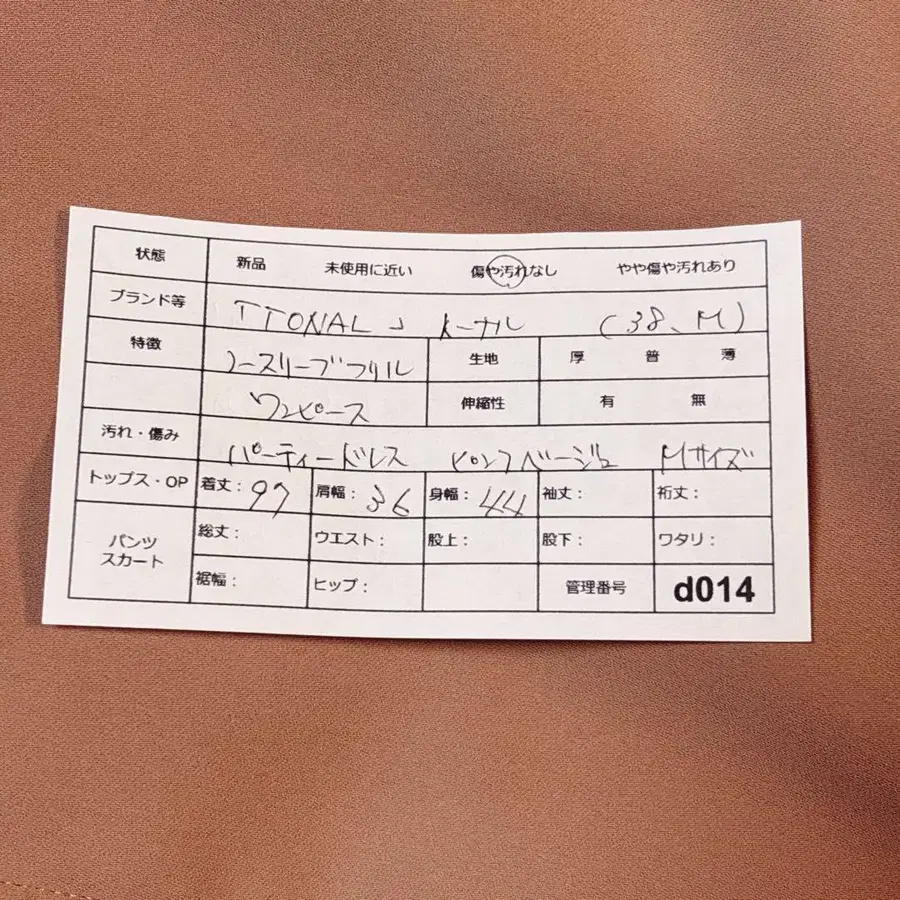 状態 新品 未使用に近い 傷や汚れなし やや傷や汚れあり
ブランド等 「TONAL」 トーナル (38、M)
特徴 ノースリーブフリル 生地 厚 普 薄
ワンピース 伸縮性 有 無
汚れ・傷み パーティードレス ピンクベージュ Mサイズ
トップス・OP 着丈：97 肩幅：36 身幅：44 袖丈： 裄丈：
パンツ スカート 総丈： ウエスト： 股上： 股下： ワタリ：
裾幅： ヒップ： 管理番号 d014